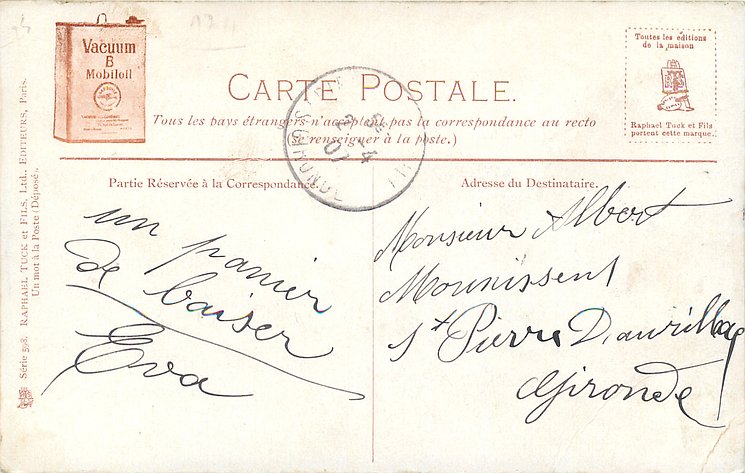 Vacuum
B
Mobiloil
CARTE POSTALE.
Tous les pays étrangers n'acceptent pas la correspondance au recto
(Se renseigner à la poste.)
Toutes les éditions
de la maison
Raphael Tuck et Fils
portent cette marque.
Partie Réservée à la Correspondance.
Adresse du Destinataire.
un panier
de baiser
Eva
Monsieur Albert
Mounissent
St Pierre D'aurillac
Gironde
Série 598. RAPHAEL TUCK et FILS, Ltd., EDITEURS, Paris.
Un mot à la Poste (Déposé).
GIRONDE
4
07